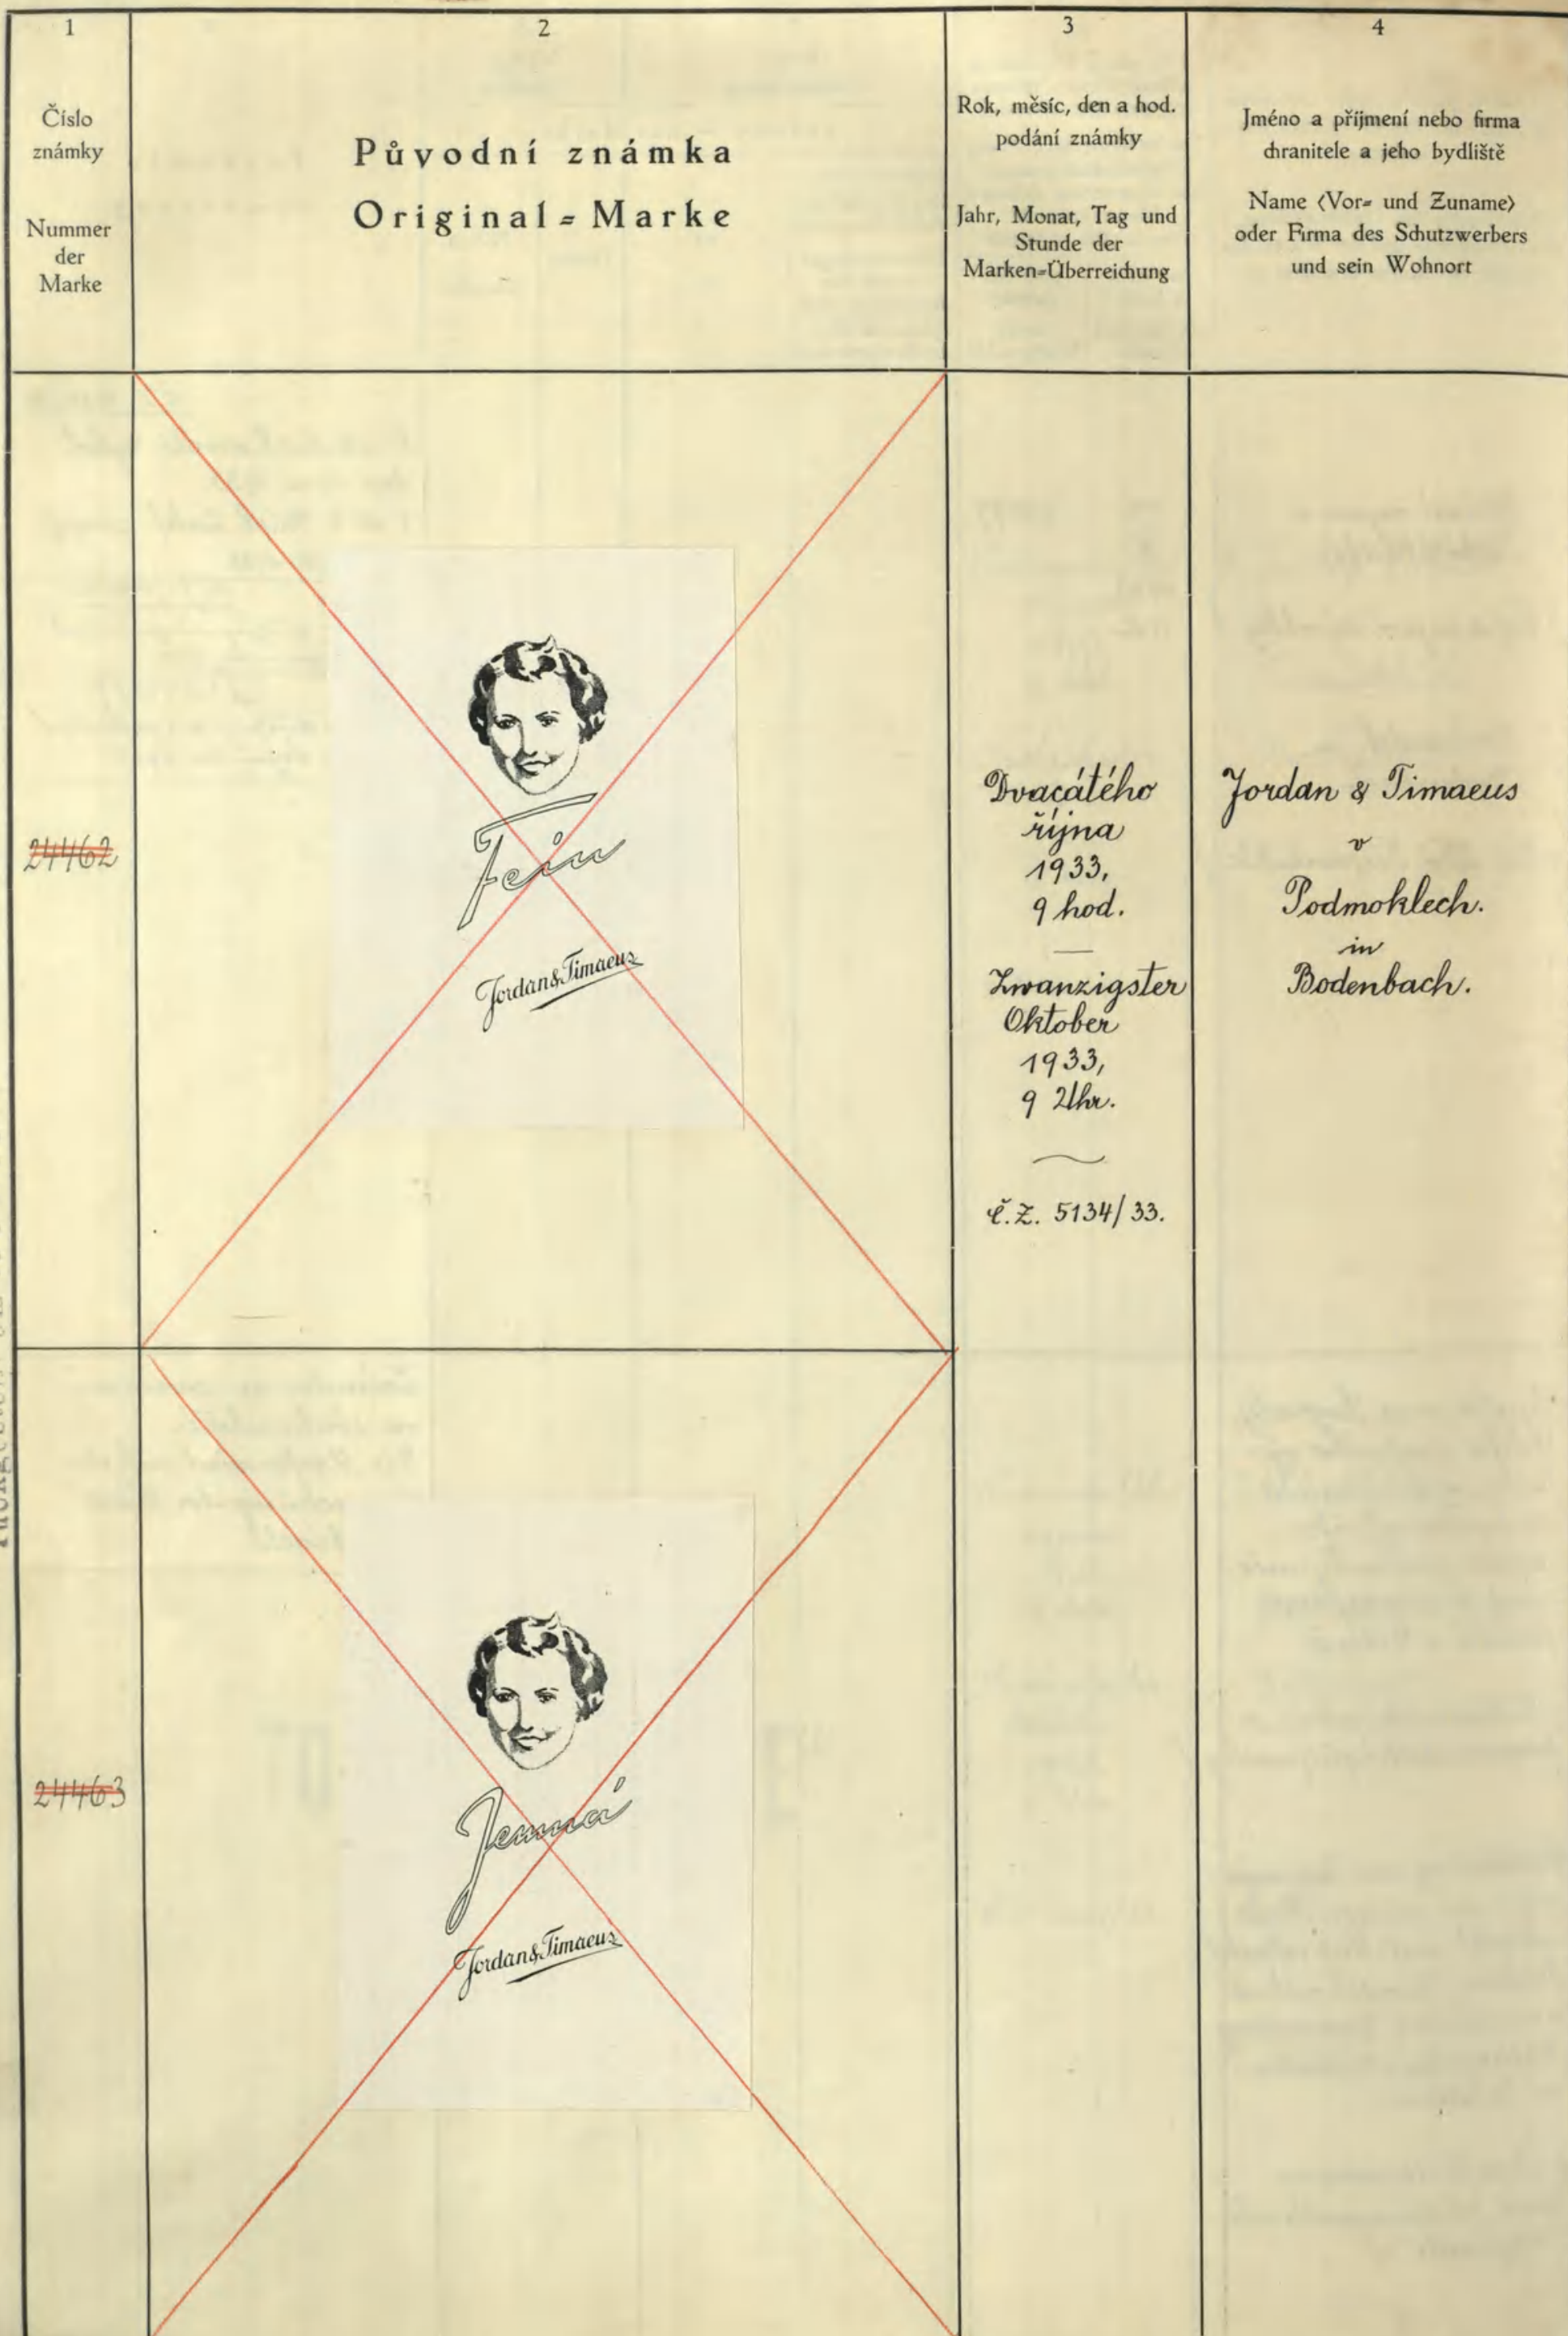 1
Číslo
známky
Nummer
der
Marke
2
Původní známka
Original=Marke
3
Rok, měsíc, den a hod.
podání známky
Jahr, Monat, Tag und
Stunde der
Marken=Überreichung
4
Jméno a příjmení nebo firma
chranitele a jeho bydliště
Name (Vor= und Zuname)
oder Firma des Schutzwerbers
und sein Wohnort
24462
Fein
Jordan & Timaeus
Dvacátého
října
1933,
9 hod.
Zwanzigster
Oktober
1933,
9 Uhr.
č.Z. 5134/33.
Jordan & Timaeus
v
Podmoklech.
in
Bodenbach.
24463
Jemná
Jordan & Timaeus